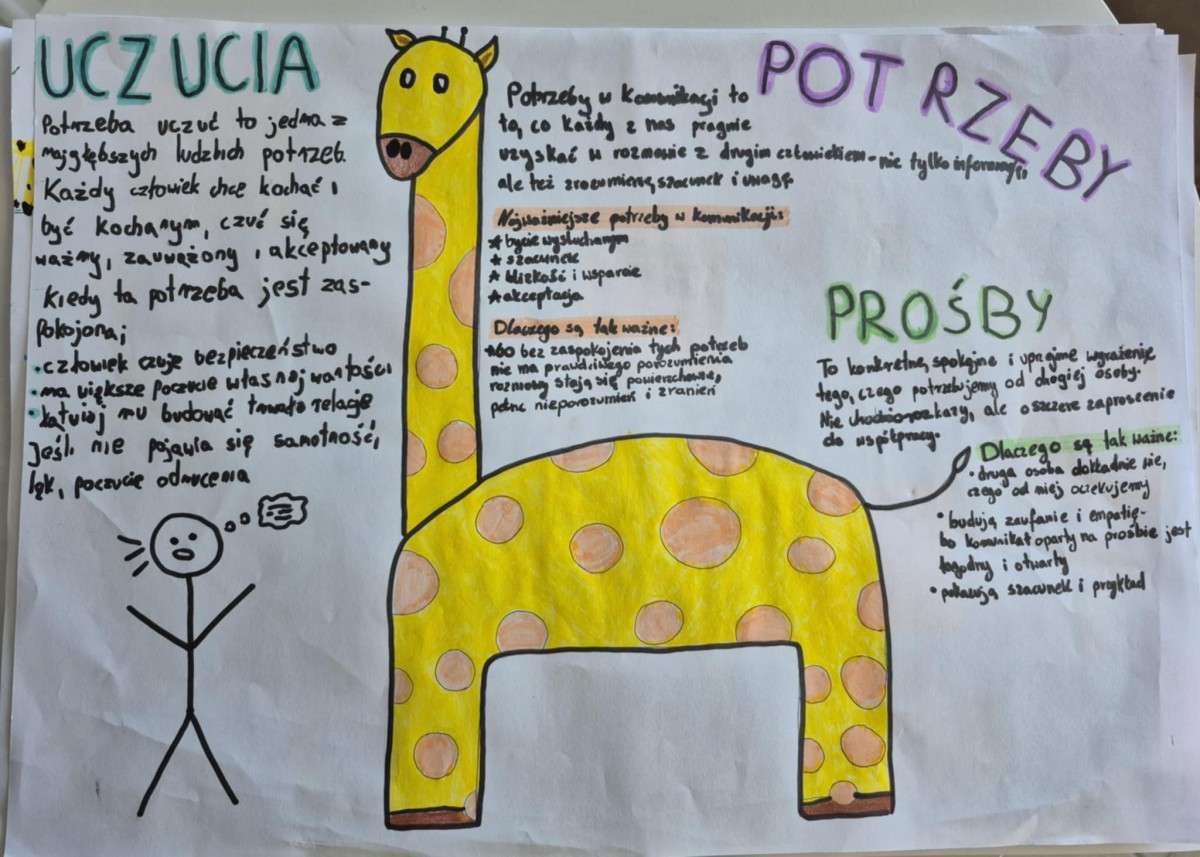 UCZUCIA
Potrzeba uczuć to jedna z
najgłębszych ludzkich potrzeb.
Każdy człowiek chce kochać i
być kochanym, czuć się
ważny, zauważony i akceptowany
Kiedy ta potrzeba jest zas-
pokojona;
• człowiek czuje bezpieczeństwo
• ma większe poczucie własnej wartości
• łatwiej mu budować trwałe relacje
Jeśli nie pojawia się samotność,
lęk, poczucie odrzucenia
POTRZEBY
Potrzeby w komunikacji to
to, co każdy z nas pragnie
uzyskać w rozmowie z drugim człowiekiem - nie tylko informacji
ale też zrozumienie, szacunek i uwagę
Najważniejsze potrzeby w komunikacji:
* bycie wysłuchanym
* szacunek
* bliskość i wsparcie
* akceptacja
Dlaczego są tak ważne:
* bo bez zaspokojenia tych potrzeb
nie ma prawdziwego porozumienia
rozmowy stają się powierzchowne,
pełne nieporozumień i zranień
PROŚBY
To konkretne, spokojne i uprzejme wyrażenie
tego, czego potrzebujemy od drugiej osoby.
Nie chodzi o rozkazy, ale o szczere zaproszenie
do współpracy.
Dlaczego są tak ważne:
• druga osoba dokładnie wie,
czego od niej oczekujemy
• budują zaufanie i empatię -
bo komunikat oparty na prośbie jest
łagodny i otwarty
• pokazują szacunek i przykład